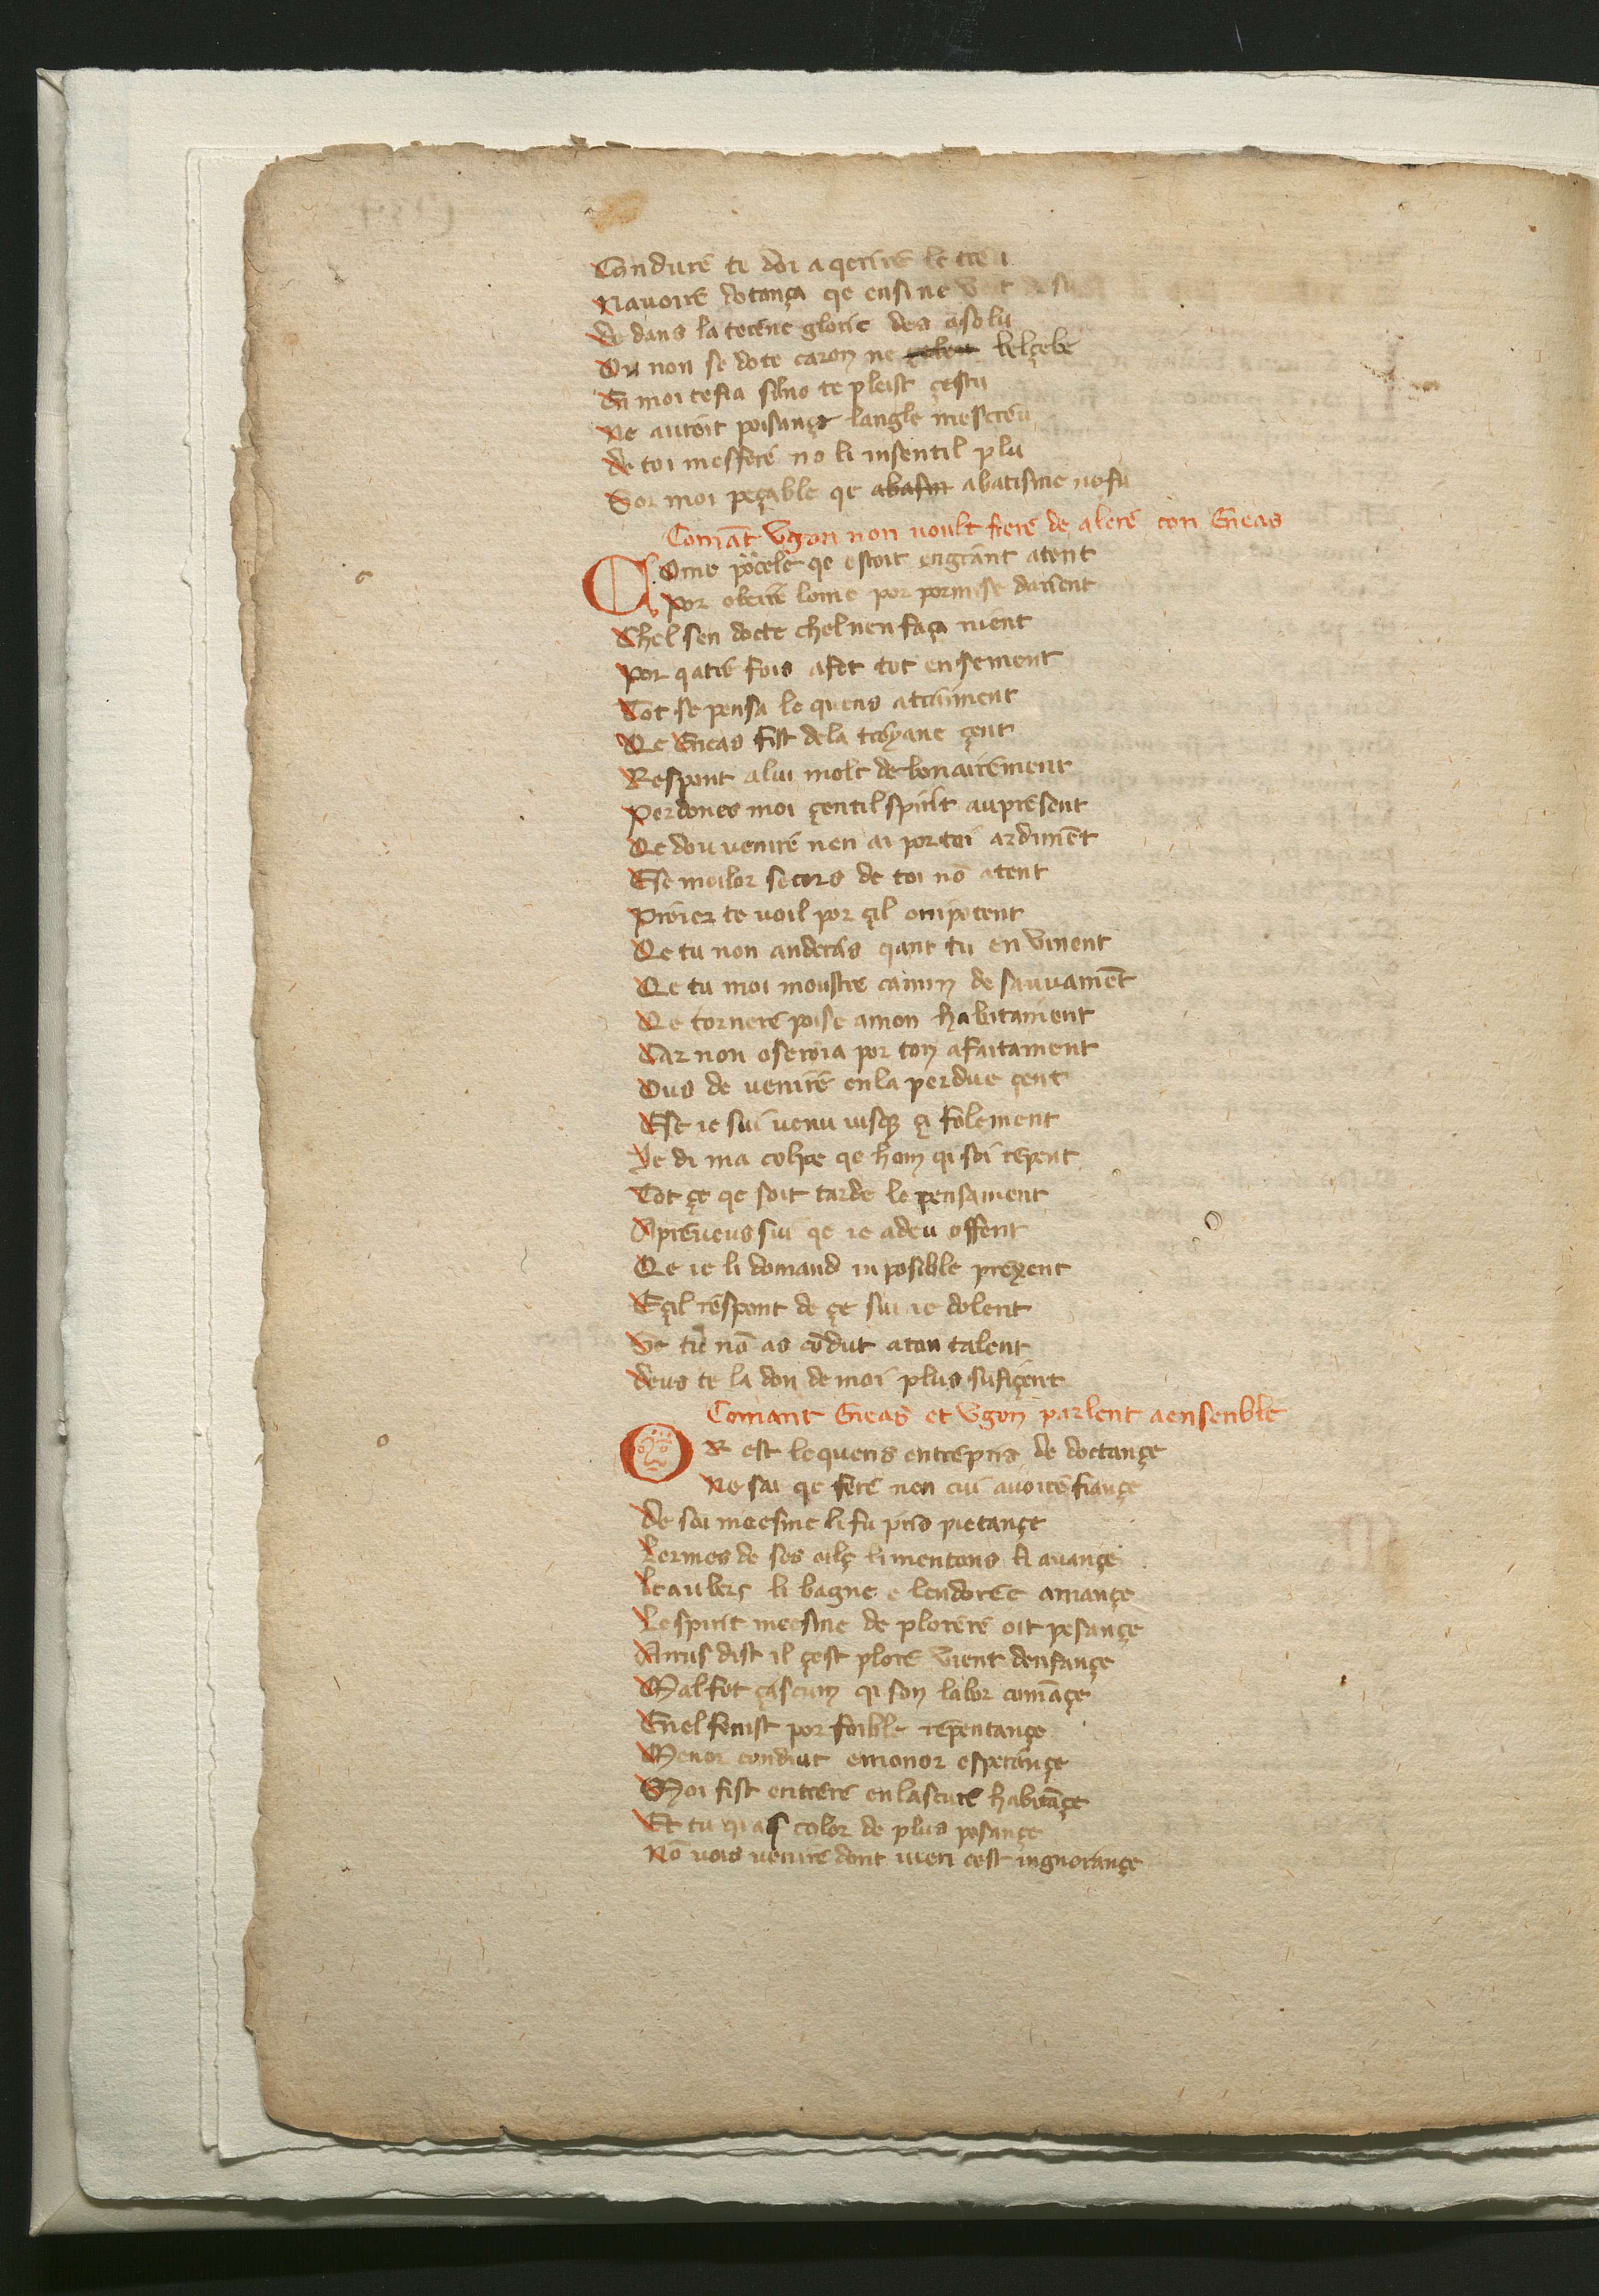 Condure te doi a qerire le treu
Navoire dotança qe ensine
de dans la terene glorie des asolu
Ou non se dote caron ne belçebu
En moi te fia silno te pleist çestu
Ne auroit poisançe langle mescreu
de toi mesfere no li insentil plu
Sor moi peçable qe abatisme nofu
Comāt Vgon non voult fiere de alere con Eneas
Come pōcele qe estoit engrant atent
Por obeire lome por pormise darient
Chel sen docte chel nen faça nient
Por qatre fois afet tot ensement
Tot se pensa le quens atraiment
Qe Eneas fist dela troyane çent
Respont alui molt de bonairement
Perdones moi çentil spirit aupresent
Qe dou venire nen ai por toi ardimēt
Ese meilor secors de toi nō atent
Proier te voil por çil onipotent
Qe tu non anderas qant tu en vinent
Qe tu moi moustre camin de sauvamēt
De tornere poise amon habitament
Car non oseroia por ton afaitament
Ous de venire enla perdue çent
Ese ie sui venu iusqe çi folement
Je di ma colpe qe hom qi soi repent
Tot çe qe soit tarde le pensament
Apreveus sui qe ie adeu offent
Qe ie li domand inposible preyent
Eçil respont de çe sui ie dolent
Se tu nō as cōdut aton talent
deus te la don de moi plus sufiçent
Comant Eneas et Vgon parlent aensenble
OR est lequens entrepris de doctançe
Ne sai qe fere nen cui avoire fiançe
De soi meesme li fu pris pietançe
Lermes de ses oilç limentons li avançe
Leauberc li bagne e lendoree amançe
Lespirit meesme de plorere oit pesançe
Amis dist il çest plore vient denfançe
Mal fet çascun qi son labor comāçe
Enel fenist por foible repentançe
Menor condiut emonor esperançe
Moi fist entrere enlascure habitāçe
Et tu qi as color de plus posançe
Nō vois venire dont vien cest ingnorançe